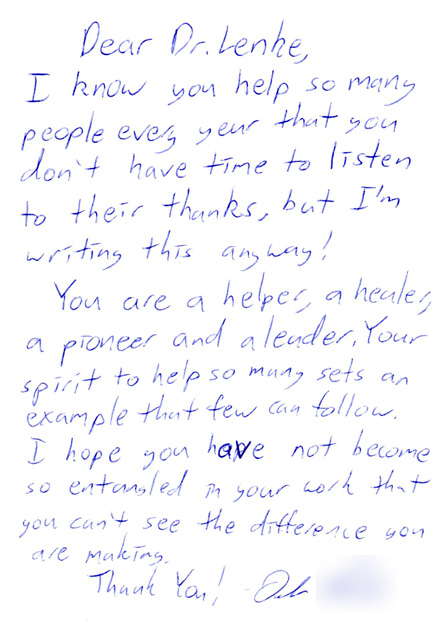 Dear Dr. Lenke,
I know you help so many
people every year that you
don't have time to listen
to their thanks, but I'm
writing this anyway!
You are a helper, a healer,
a pioneer and a leader. Your
spirit to help so many sets an
example that few can follow.
I hope you have not become
so entangled in your work that
you can't see the difference you
are making.
Thank You! -